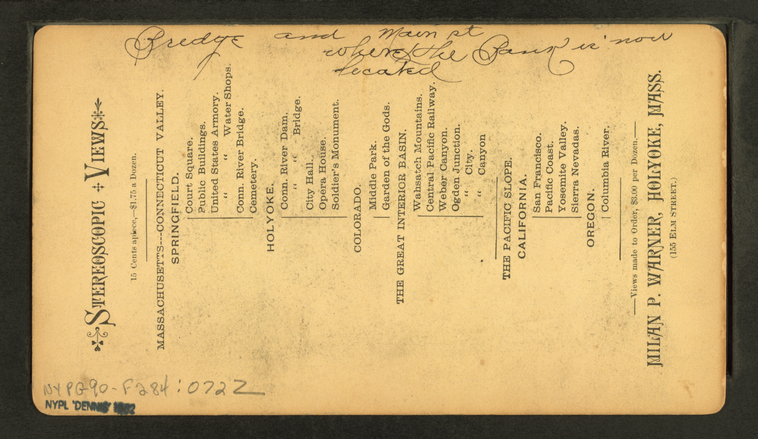 Bridge and Main st
where the Bank is now
located
STEREOSCOPIC VIEWS
15 Cents apiece,—$1.75 a Dozen.
MASSACHUSETTS---CONNECTICUT VALLEY.
SPRINGFIELD.
Court Square.
Public Buildings.
United States Armory.
“ “ Water Shops.
Conn. River Bridge.
Cemetery.
HOLYOKE.
Conn. River Dam.
“ “ Bridge.
City Hall.
Opera House.
Soldier's Monument.
COLORADO.
Middle Park.
Garden of the Gods.
THE GREAT INTERIOR BASIN.
Wahsatch Mountains.
Central Pacific Railway.
Weber Canyon.
Ogden Junction.
“ City.
“ Canyon
THE PACIFIC SLOPE.
CALIFORNIA.
San Francisco.
Pacific Coast.
Yosemite Valley.
Sierra Nevadas.
OREGON.
Columbia River.
—Views made to Order, $3.00 per Dozen.—
MILAN P. WARNER, HOLYOKE, MASS.
(155 ELM STREET.)
NYPG90-F284:072Z
NYPL 'DENNIS'